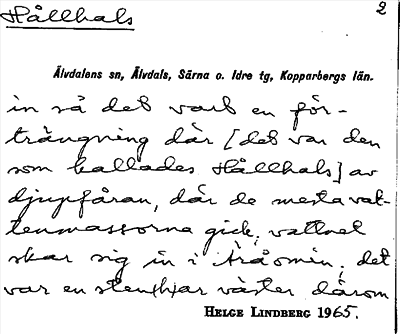 Hållhals
2
Älvdalens sn, Älvdals, Särna o. Idre tg, Kopparbergs län.
in så det vart en för-
trängning där [det var den
som kallades Hållhals] av
djupfåran, där de mesta vat-
tenmassorna gick; vattnet
skar sig in i Åråsmin; det
var en sten(h)ar väster därom
HELGE LINDBERG 1965.